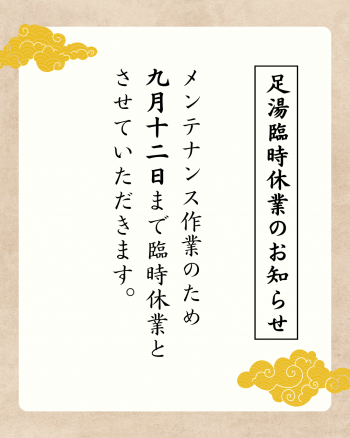 足湯臨時休業のお知らせ
メンテナンス作業のため
九月十二日まで臨時休業と
させていただきます。